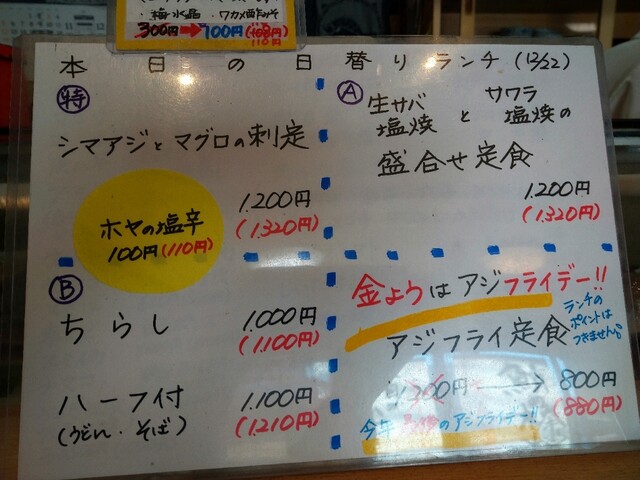 ・梅水晶 ・ワカメ酢みそ
300円→100円(110円)
本日の日替りランチ(12/22)
特
シマアジとマグロの刺定
1.200円
(1.320円)
ホヤの塩辛
100円(110円)
A
生サバ塩焼とサワラ塩焼の
盛合せ定食
1.200円
(1.320円)
B
ちらし
1.000円
(1.100円)
ハーフ付
(うどん・そば)
1.100円
(1.210円)
金ようはアジフライデー!!
アジフライ定食
ランチの
ポイントは
つきません。
1.300円→800円
(880円)
今年のアジフライデー!!